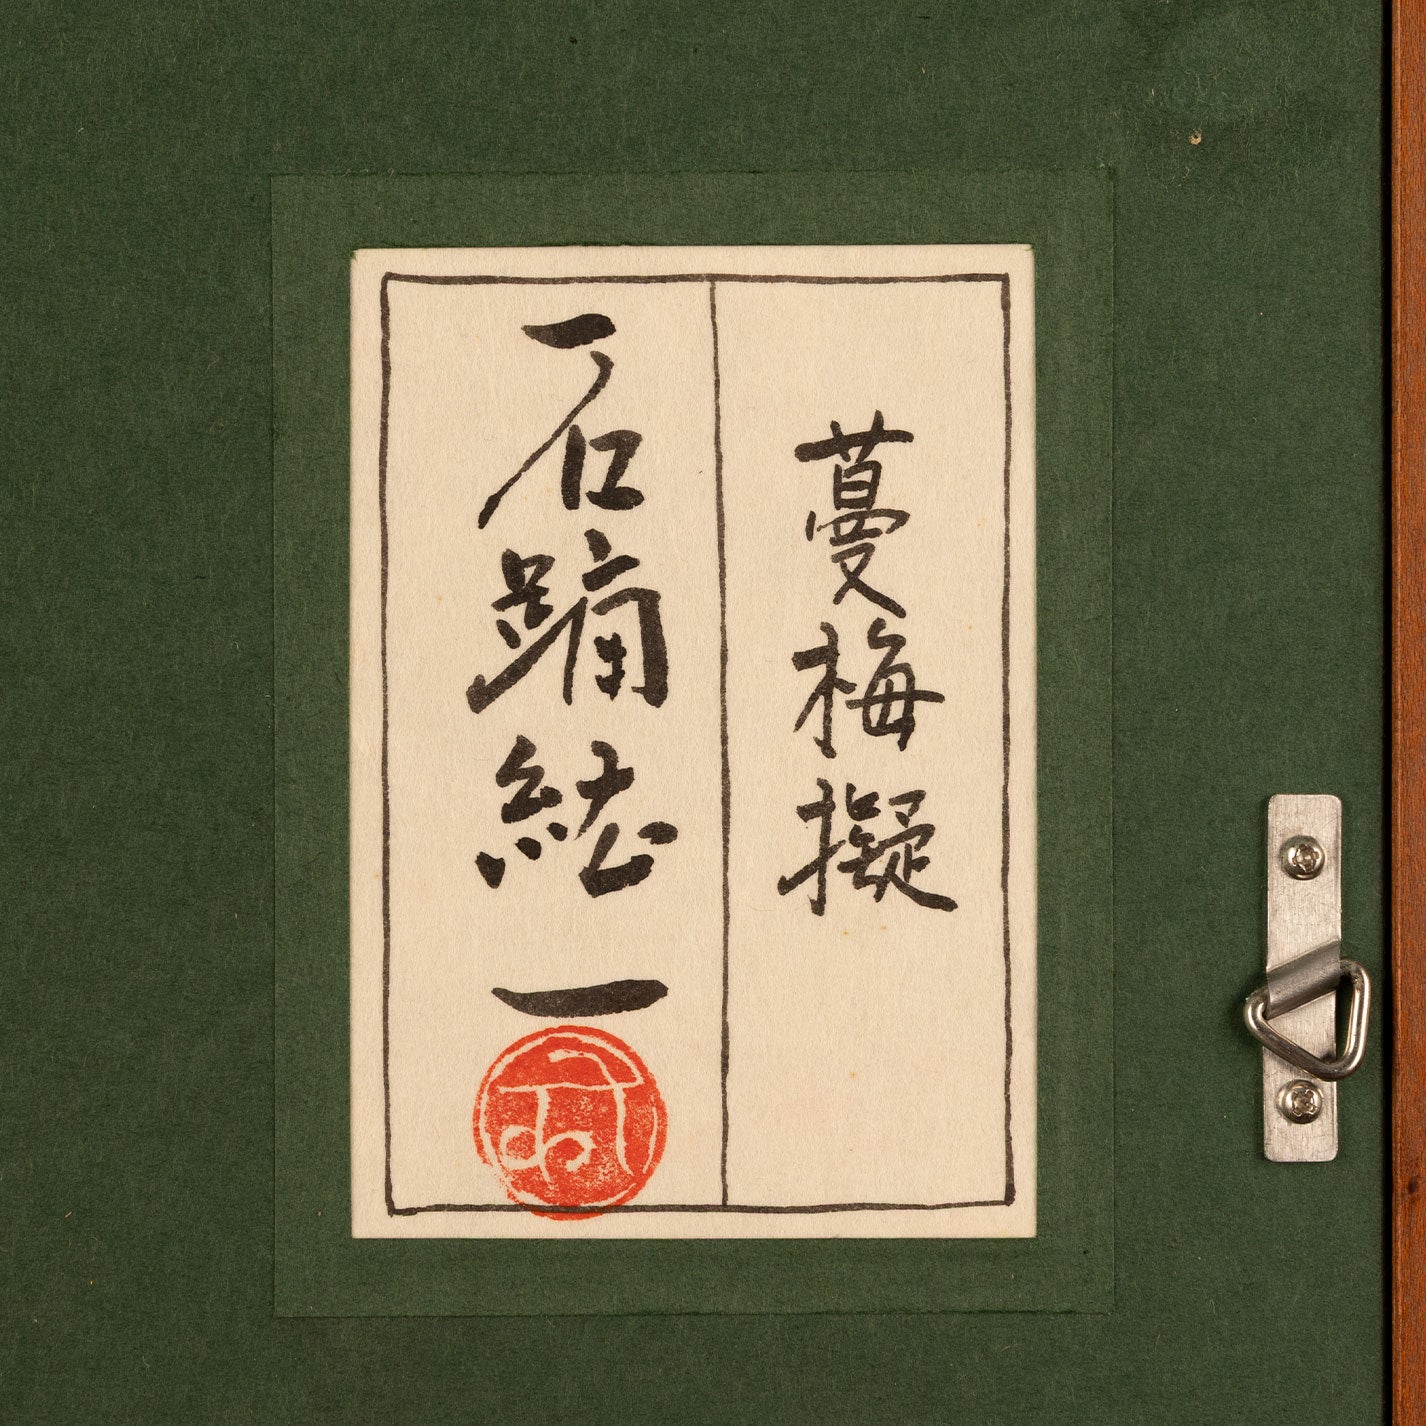 蔓梅擬
石踊紘一